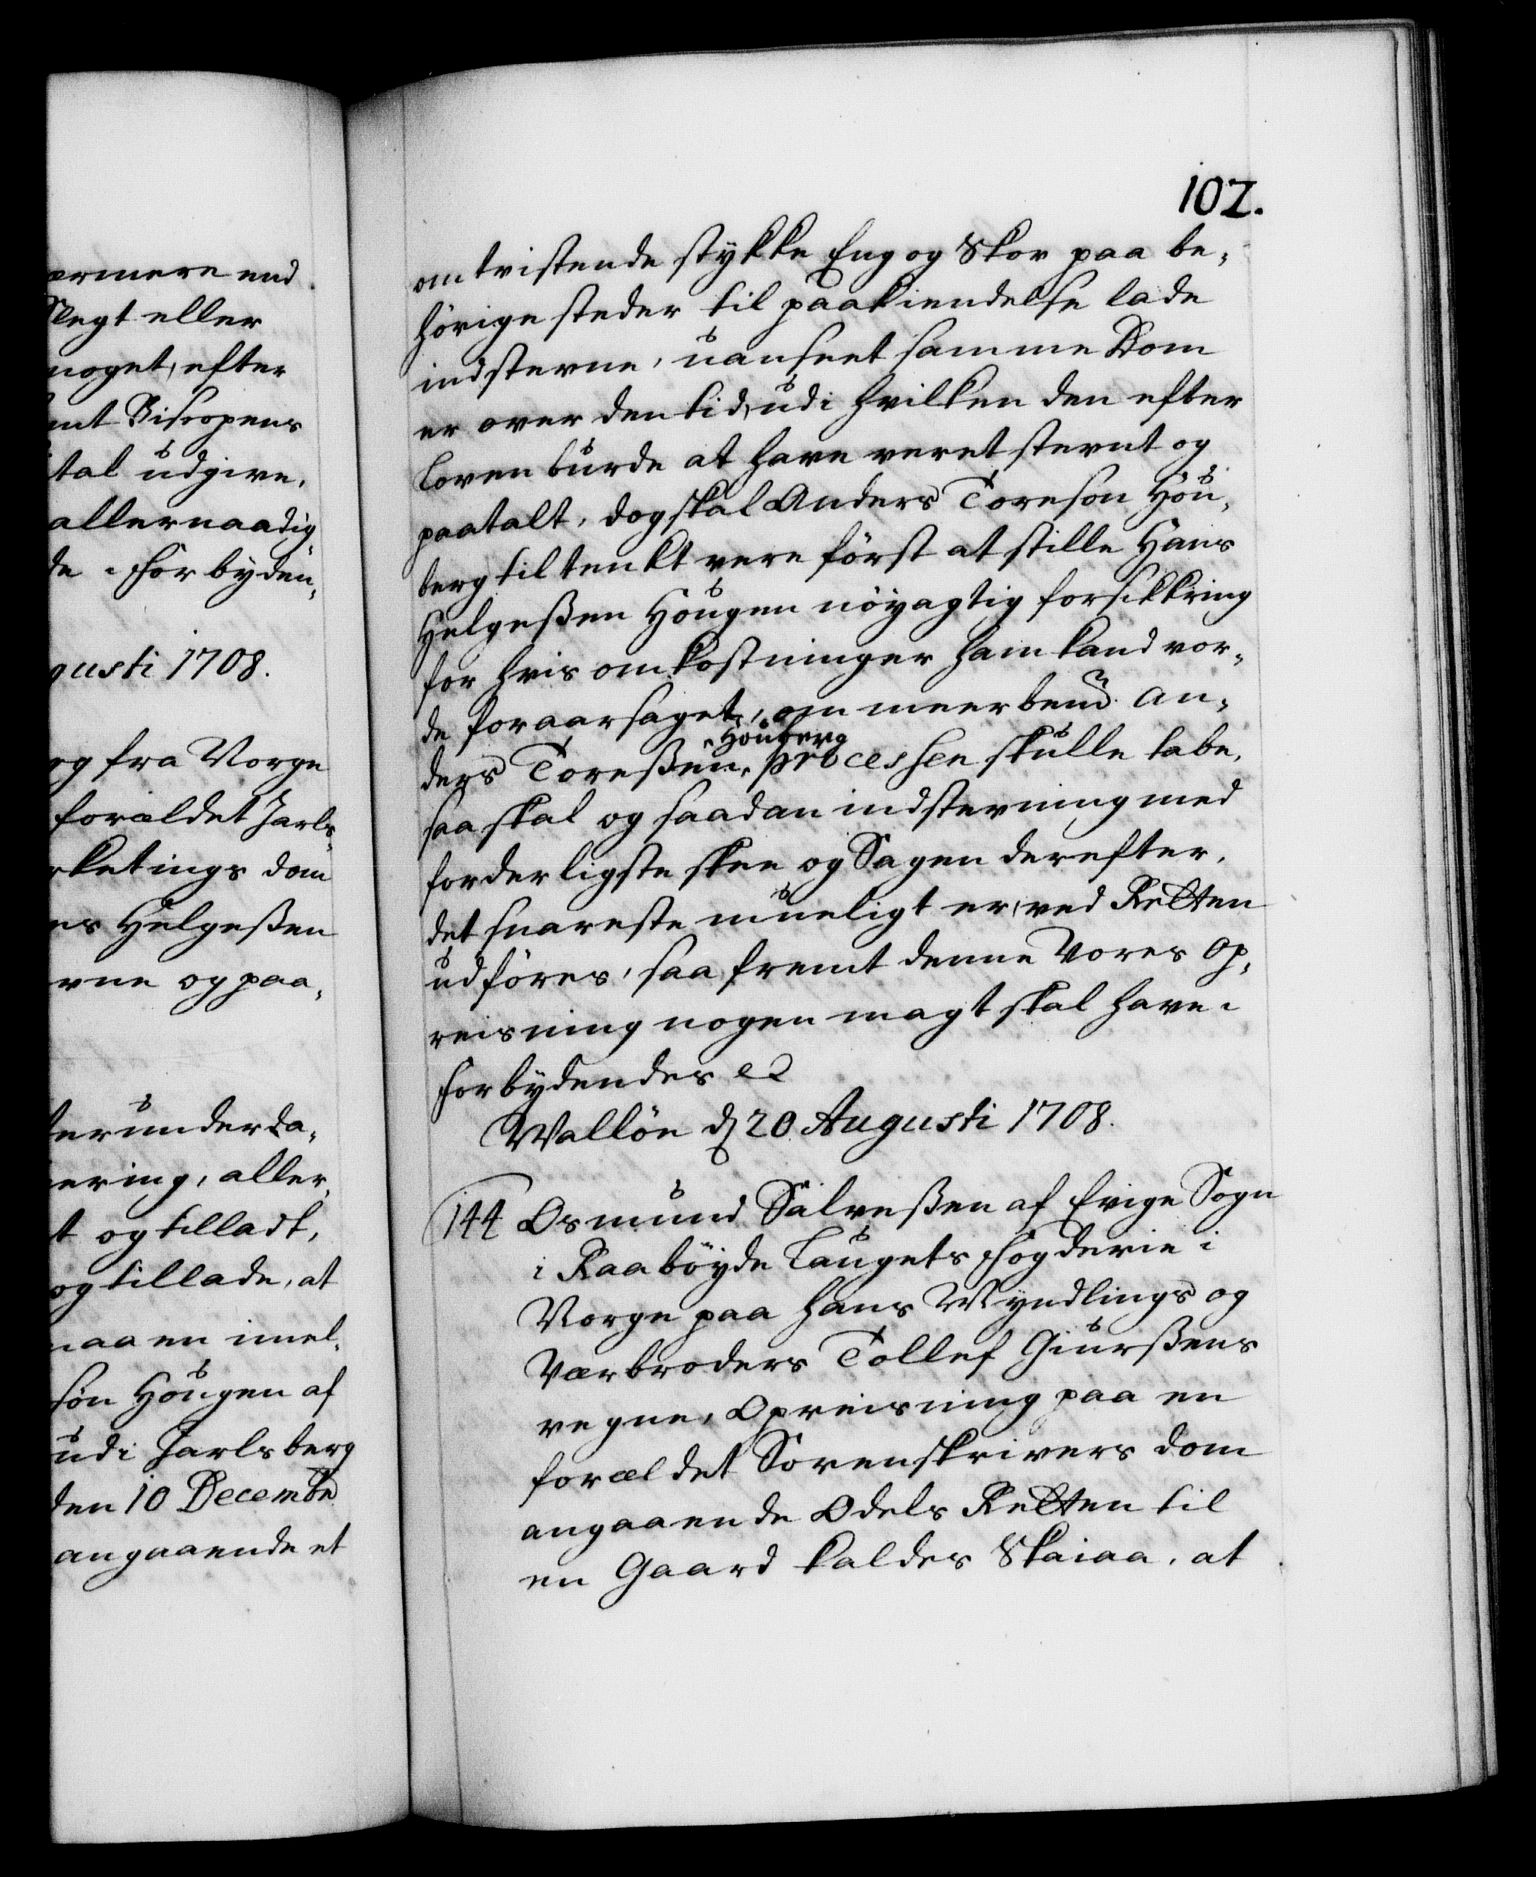 ermere end
Slegt eller
noget, efter
mt Biscopens
tal udgive,
allernaadig
de. Forbyden,
gusti 1708.
og fra Norge
forældet Jarls,
rketings dom
ns Helgeßen
vne og paa,
erunderda,
ering, aller,
t og tilladt,
og tillade, at
naa en imel,
søn Hougen af
udi Jarlsberg
den 10 Decembr
angaaende et
102.
omtvistende stykke Eng og Skov paa be,
hörige steder til paakiendelse lade
indstevne, uanseet samme Dom
er over den tid, udi hvilken den efter
loven burde at have veret stevnt og
paatalt, dog skal Anders Toreson Hou,
berg tiltenkt vere först at stille Hans
Helgeßen Hougen nöyagtig forsikkring
for hvis omkostninger ham kand vor,
de foraarsaget, om meerbemd. An,
ders Toreßen, Houberg processen skulle tabe,
saa skal og saadan indstevning med
forderligste skee og Sagen derefter,
det snareste mueligt er, ved Retten
udföres, saa fremt denne Vores Op,
reisning nogen magt skal have.
Forbydendes etc
Walløe d 20 Augusti 1708.
144 Osmund Salveßen af Evige Sogn
i Raabøyde Laugets Fogderie i
Norge paa hans Myndlings og
Værbroders Tollef Giurßens
vegne, Opreisning paa en
forældet Sorenskrivers dom
angaaende Odels Retten til
en Gaard kaldes Skaiaa, at